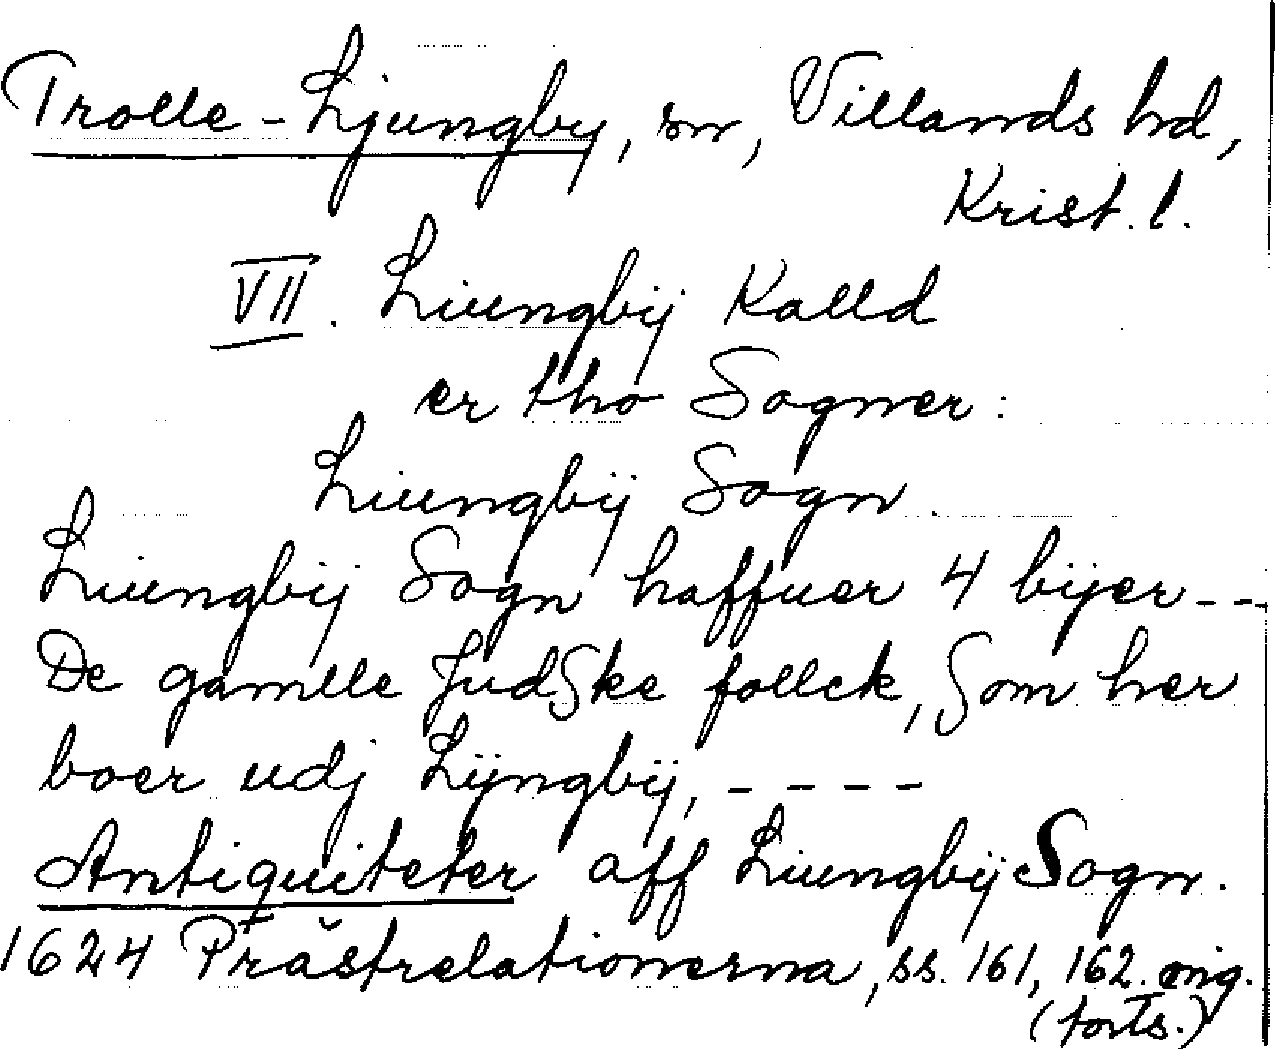 Trolle-Ljungby, sn, Villands hd,
Krist. l.
VII. Liungbÿ Kalld
er tho Sogner:
Liungbÿ Sogn.
Liungbÿ Sogn haffuer 4 bÿer---
De gamlle JudSke follck, Som her
boer udj Lÿngbÿ, ----
Antiquiteter aff Liungbÿ Sogn.
1624 Prästrelationerna, ss. 161, 162. orig.
(forts.)